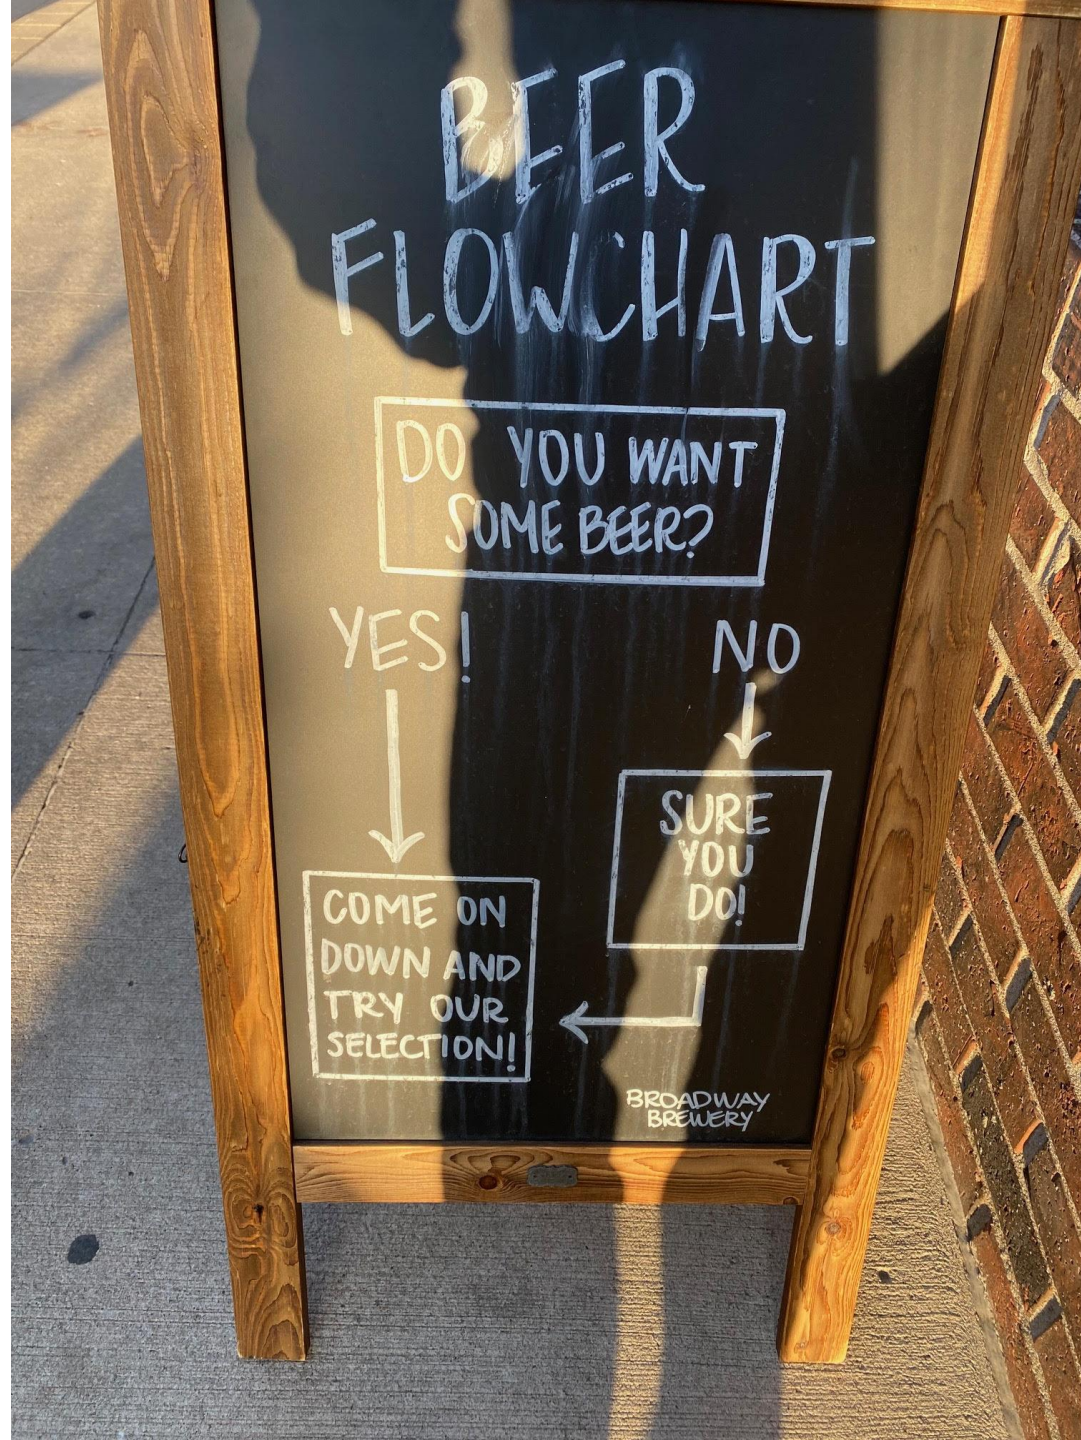 BEER
FLOWCHART
DO YOU WANT
SOME BEER?
YES!
NO
SURE
YOU
DO!
COME ON
DOWN AND
TRY OUR
SELECTION!
BROADWAY
BREWERY